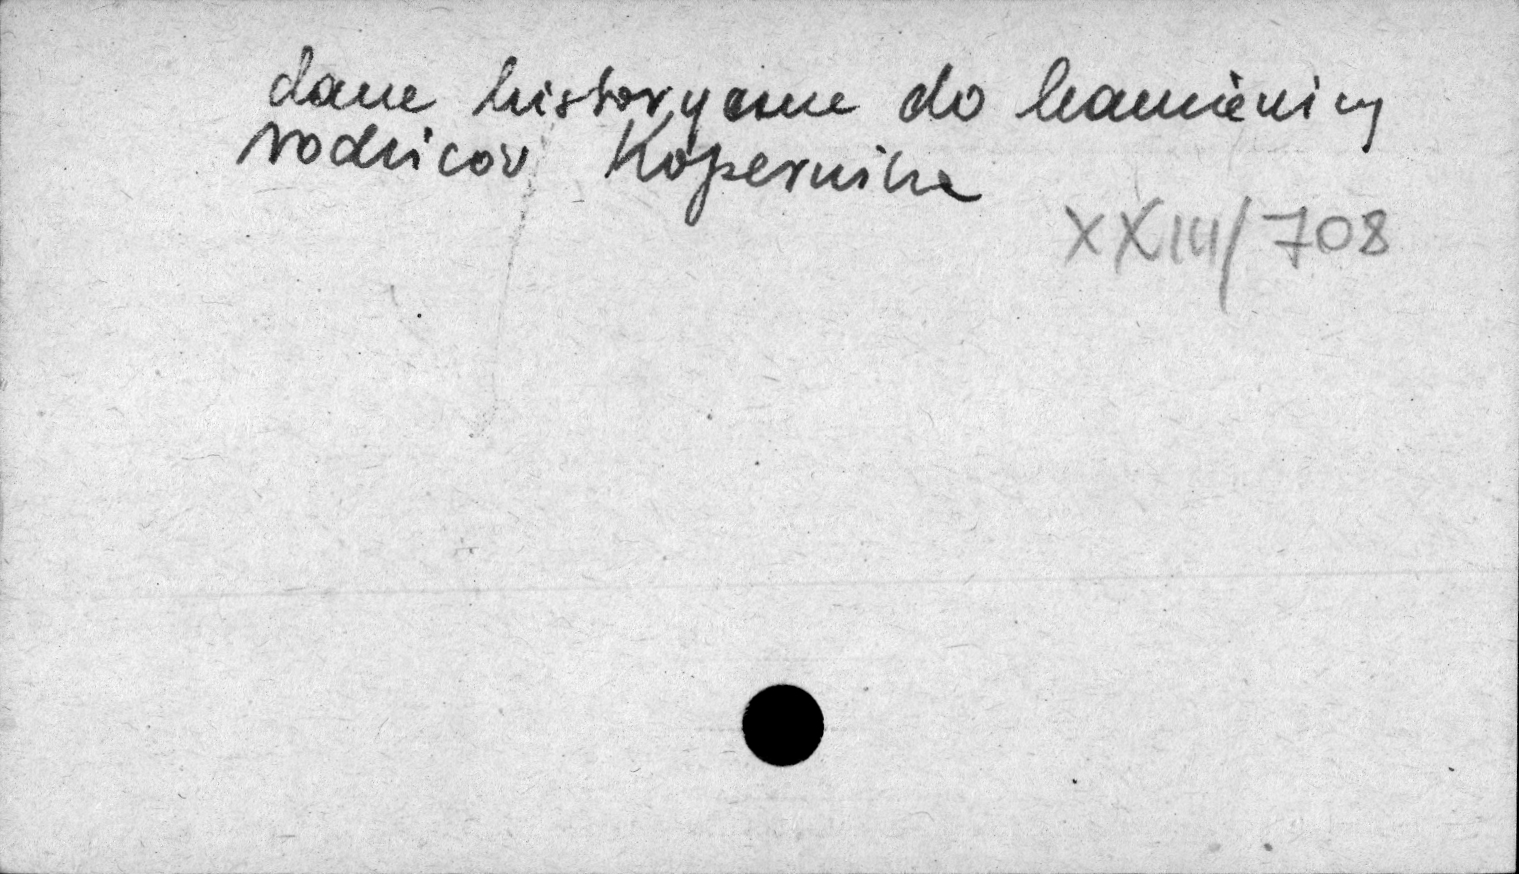 dane historyczne do kamienicy
rodziców Kopernika
XXIII/708